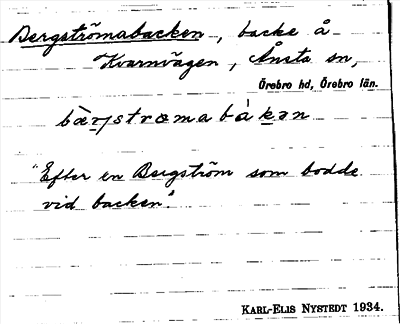 Bergströmabacken, backe å
Kvarnvägen, Ånsta sn,
Örebro hd, Örebro län.
bæ̀rjstrœmabàkən
"Efter en Bergström som bodde
vid backen".
KARL-ELIS NYSTEDT 1934.